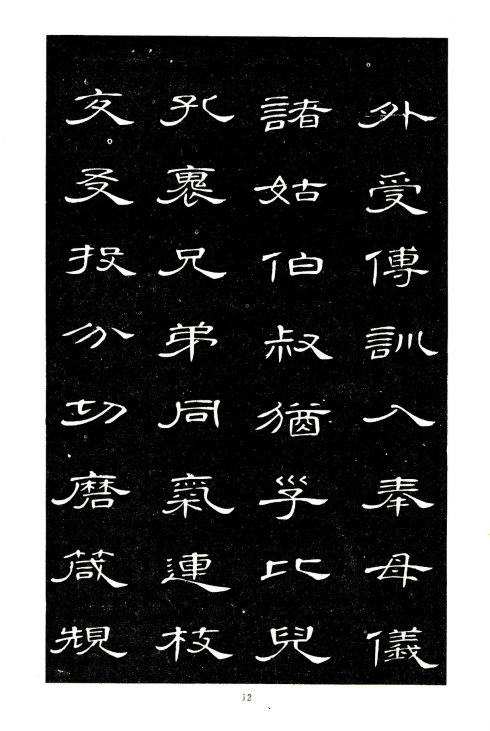 外受傅訓入奉母儀
諸姑伯叔猶㜽比兒
孔褱兄弟同氣連枝
交友投分切磨箴規